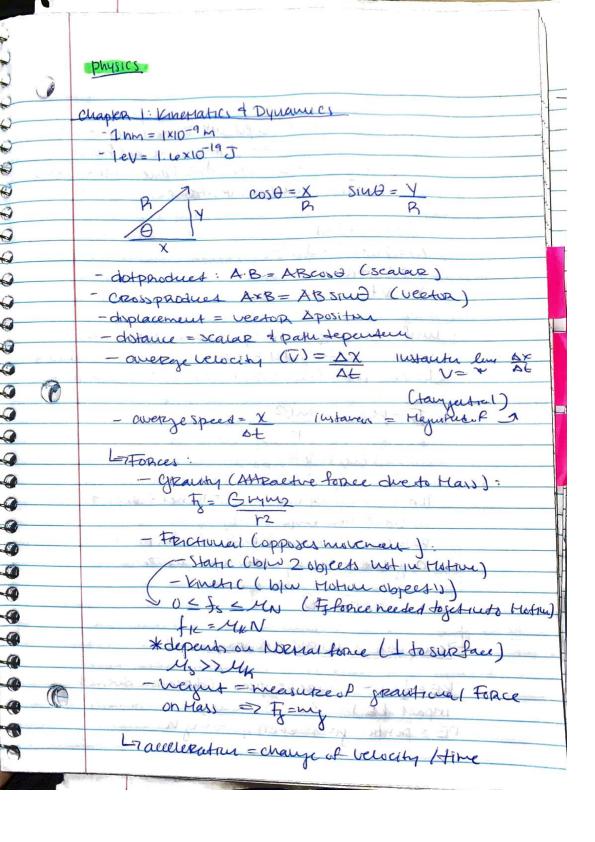 Physics
Chapter 1: Kinematics & Dynamics
- 1 nm = 1x10⁻⁹ m
- 1 eV = 1.6x10⁻¹⁹ J
R Y θ X
cosθ = X/R sinθ = Y/R
- dotproduct: A·B = ABcosθ (scalar)
- crossproduct AxB = ABsinθ (vector)
- displacement = vector Δposition
- distance = scalar & path dependent
- average velocity (V̄) = ΔX/Δt V = lim ΔX/Δt
(tangential)
- average speed = X/Δt instaten = Magnitude of ↗
↳ Forces:
- gravity (Attractive force due to Mass):
Fg = Gm₁m₂/r²
- Frictional (opposes movement):
- Static (b/w 2 objects not in Motion)
- kinetic (b/w Motion object(s))
0 ≤ fs ≤ μN (force needed to get into Motion)
fk = μkN
*depends on Normal force (⊥ to surface)
μs >> μk
- weight = measure of gravitional Force
on Mass ⇒ Fg = mg
↳ acceleration = change of velocity / time